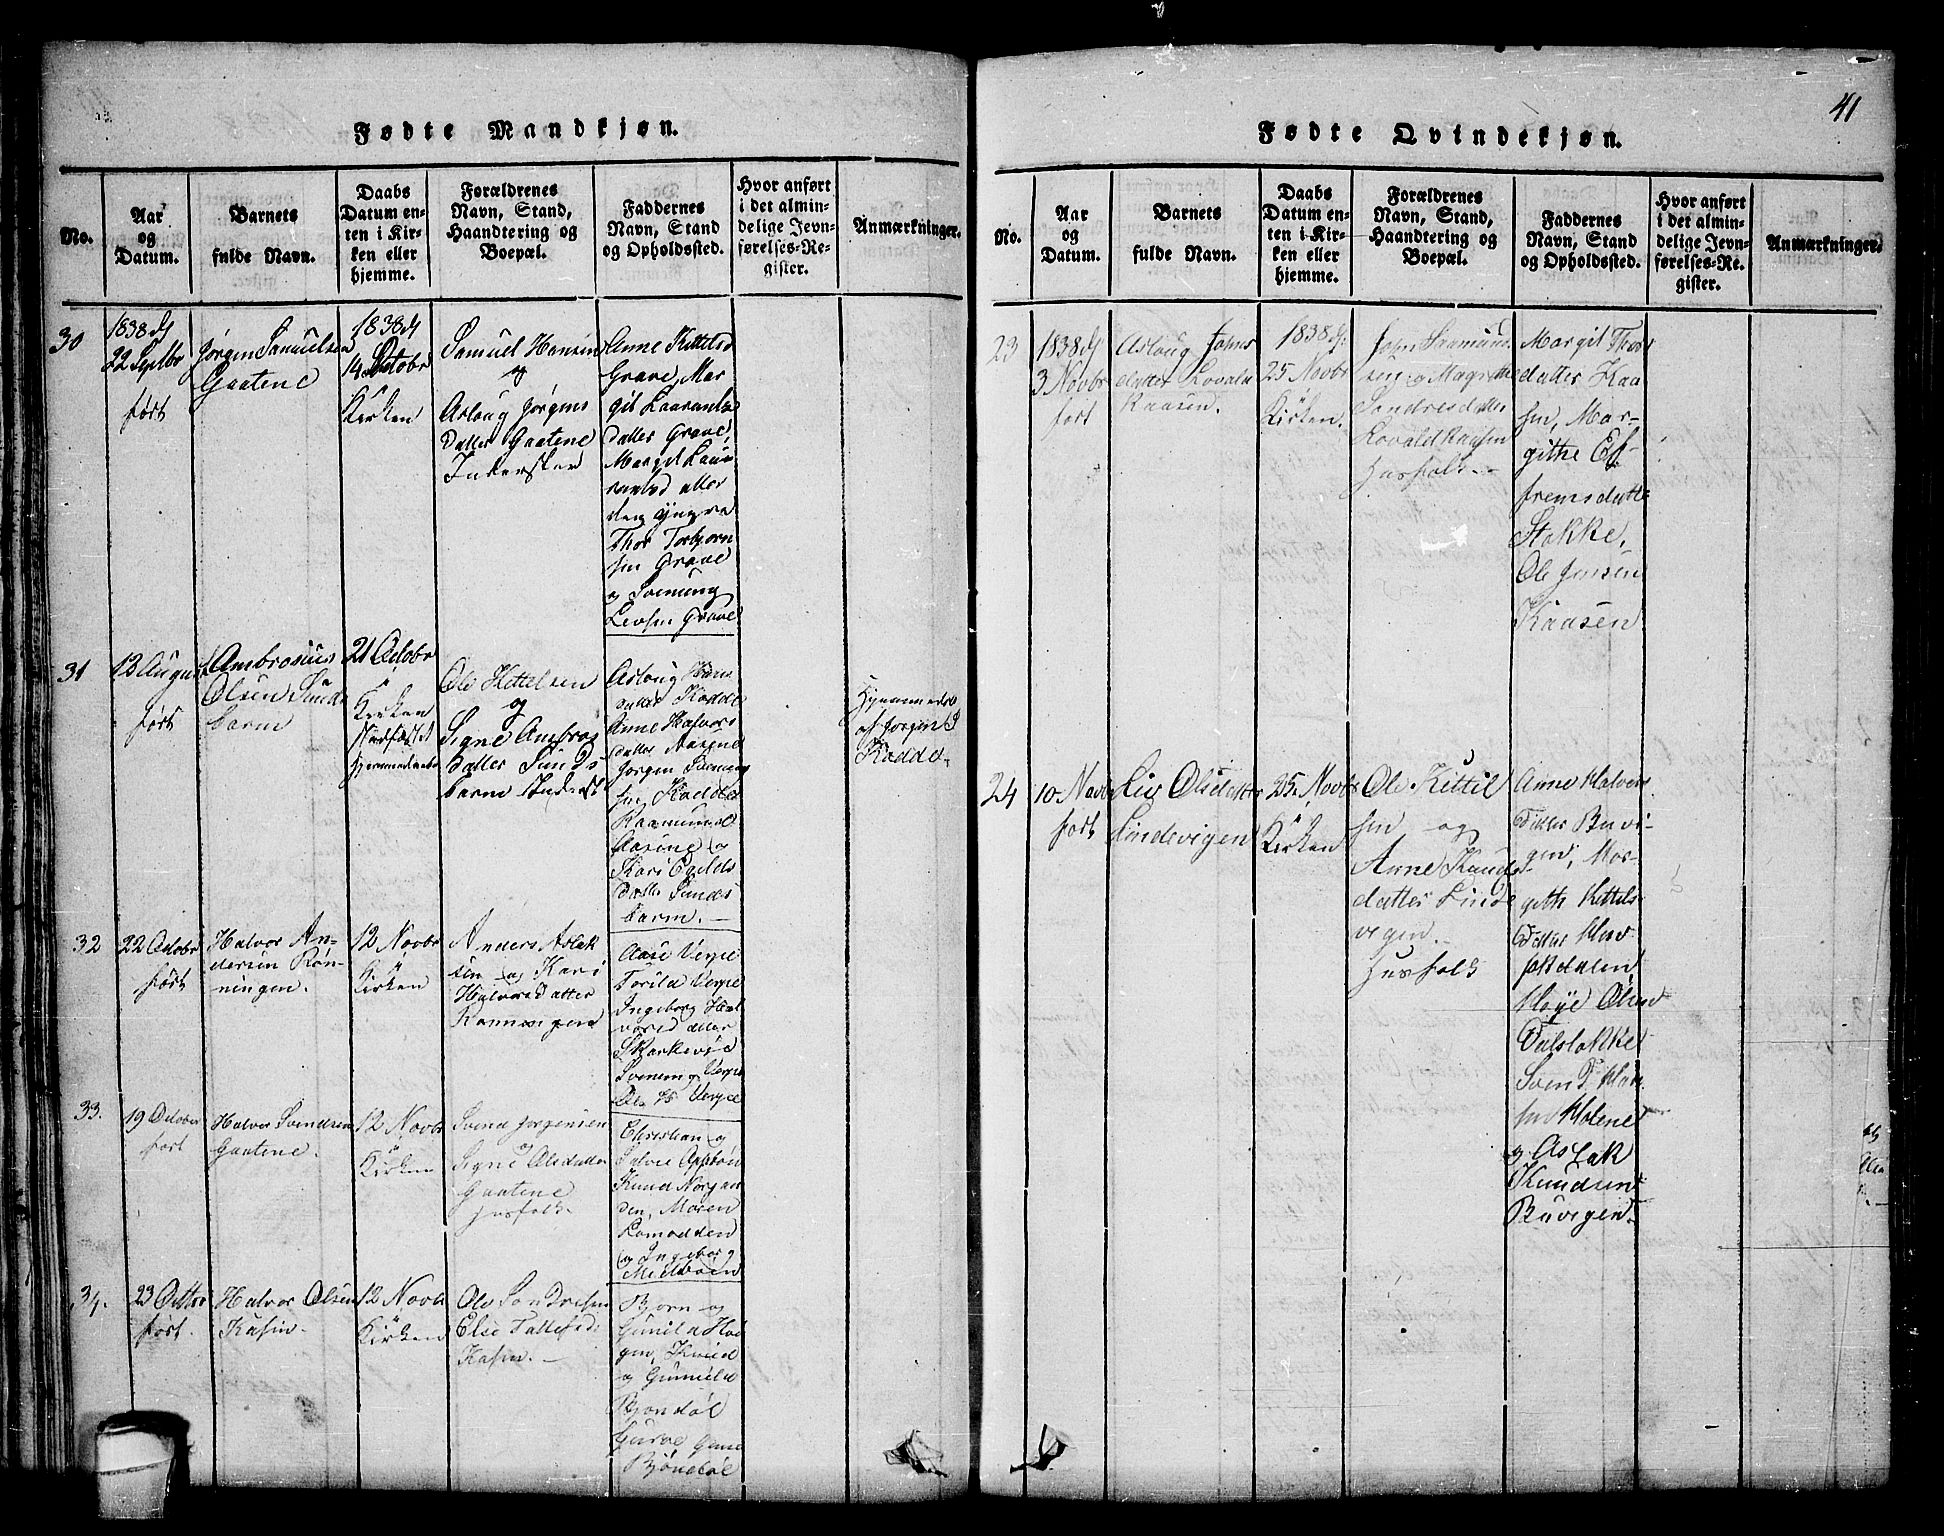 41
Fødte Mandkjøn.
No.
Aar
og
Datum.
Barnets
fulde Navn.
Daabs
Datum en-
ten i Kir-
ken eller
hjemme.
Forældrenes
Navn, Stand,
Haandtering og
Boepæl.
Faddernes
Navn, Stand
og Opholdssted.
Hvor anført
i det almin-
delige Jevn-
førelses-Re-
gister.
Anmærkninger.
30
1838 d
22 Septbr
født
Jørgen Samuelsen
Gaatene
1838 d
14 Octobr
i
Kirken
Samuel Hansen
og
Aslaug Jørgens
Datter Gaatene
Inderster
Anne Kittelsd
Grave, Mar
git Laurantsd
datter Grave,
Margit Lau
rantsd atter
den yngre
Thor Torbjorn
sen Grave
og Svenung
Levsen Grave
31
13 August
født
Ambrosius
Olsen Sunds
barm
21 Octobr
i
Kirken
stadfæstet
hjemmedaab
Ole Kittelsen
og
Signe Ambros
Datter Sunds
barm Inderst
Aslaug
datter Kodde
Anne Halvors
datter Aasine
Jorgen Svenung
sen Kodde
Raamund
Aasine og
Kari Egilds
datter Sunds
barm.
Hjemmedøbt
af Jorgen S
Kodde.
32
22 Octobr
født
Halvor An-
dersen Røn-
ningen.
12 Novbr
i
Kirken
Anders Aslak
sen og Kari
Halvorsdatter
Ronningen
Aase Verpe
Torild Verpe
Ingeborg Hal
vorsd atter
Skarkevje
Svenung Verpe
Verpe
33.
19 Octobr
født
Halvor Svendsen
Gaatene.
12 Novbr
i
Kirken
Svend Jorgensen
og
Signe Olsdatter
Gaatene
Husfolk.
Christian og
Salve
Knud Norgar
den, Maren
Lomodden
og Ingeborg
Midbøen
34.
23 Octbr
født.
Halvor Olsen
Kasin.
12 Novbr
i
Kirken
Ole Sondresen
Else Tallefsd:
Kasin.
Bjorn og
Gunild Hai
gen,
og Gunild
Bjondøl
Gurve
Bjöndøl
Fødte Qvindekjøn.
No.
Aar
og
Datum.
Barnets
fulde Navn.
Daabs
Datum en-
ten i Kir-
ken eller
hjemme.
Forældrenes
Navn, Stand,
Haandtering og
Boepæl.
Faddernes
Navn, Stand
og Opholdssted.
Hvor anført
i det almin-
delige Jevn-
førelses-Re-
gister.
Anmærkninger.
23
1838 d
3 Novbr
født
Aslaug Johns
datter Lovald
Kaasen.
1838 d
25 Novbr
i
Kirken.
John Saamund
sen og Magrethe
Sondresdatter
Lovald Kaasen
Husfolk.
Margit Thors
datter Kaa
sen, Mar-
githe Ef-
fremsdatter
Stokke,
Ole Jensen
Kaasen
24
10 Novbr
født
Liv Olsdatter
Lindevigen
25 Novbr
i
Kirken
Ole Kittil
sen og
Anne Knuds
datter Linde
vigen.
Husfolk
Anne Halvors
Datter Buvi-
gen, Mar-
geth Kittels
Datter Hov
fatdalen
Høye Olsen
Dalstokke
Svend Han
sen Holene
og Aslak
Knudsen
Buvigen.